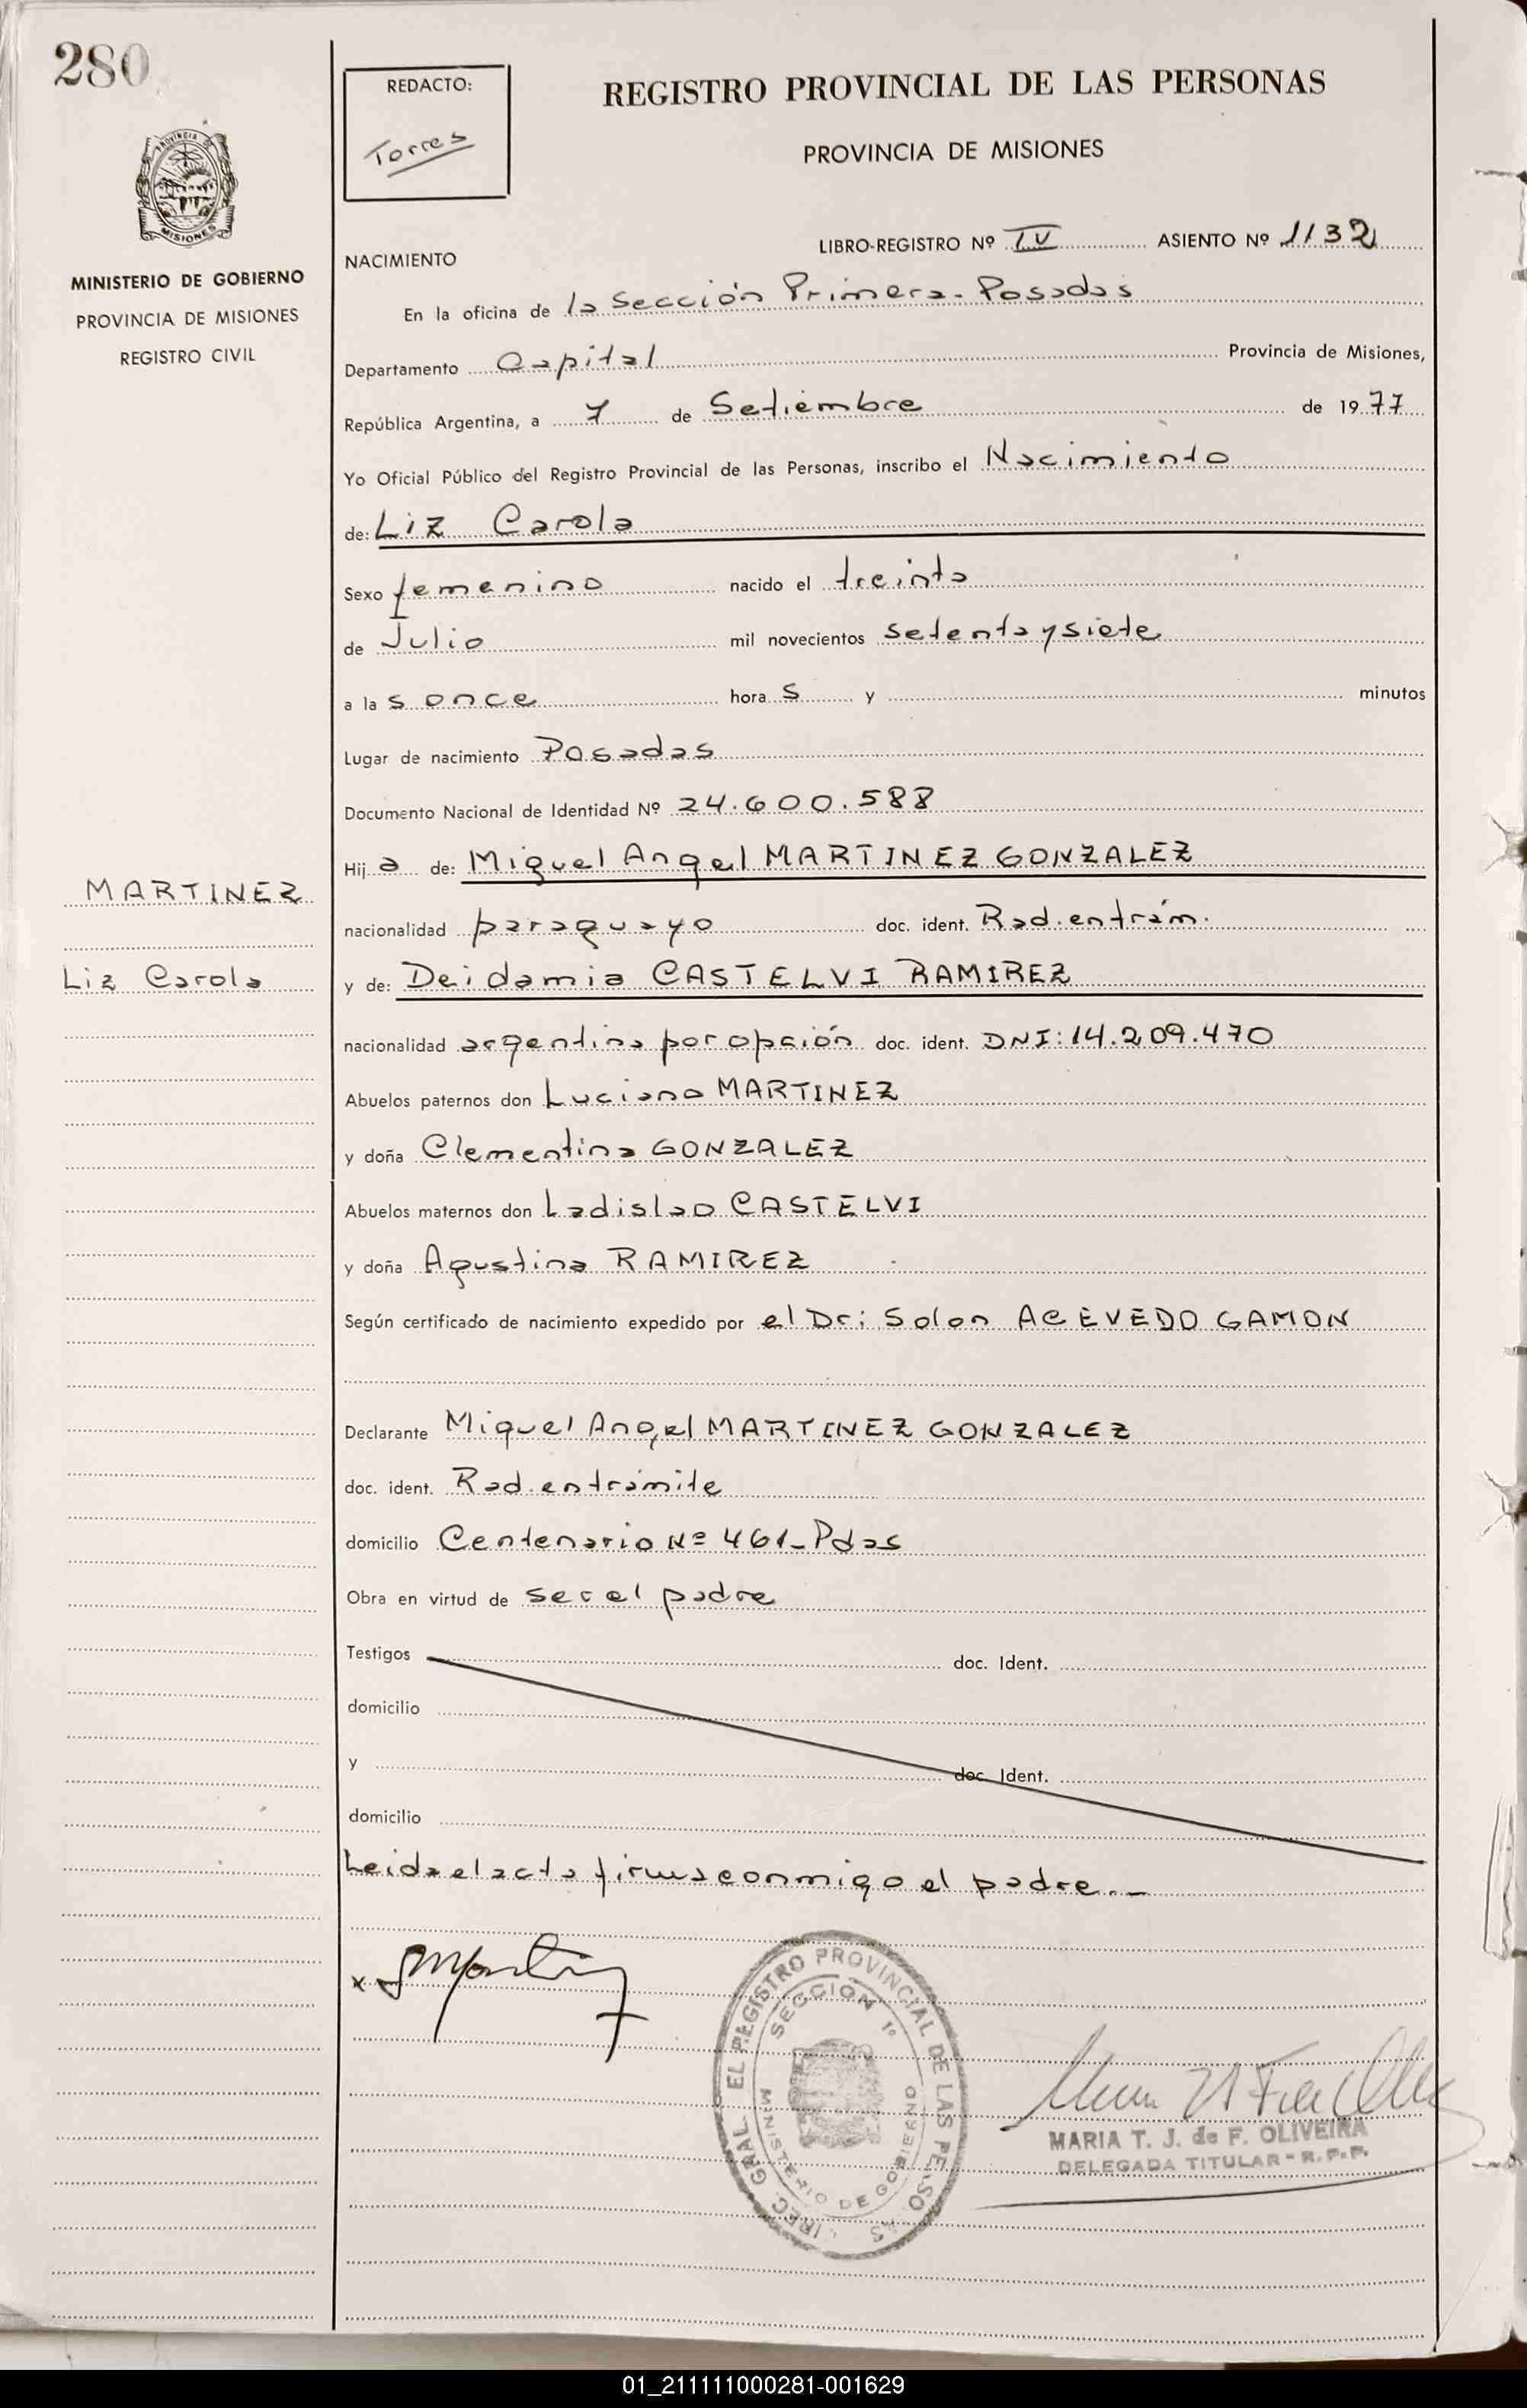 280
REDACTO:
Torres
REGISTRO PROVINCIAL DE LAS PERSONAS
PROVINCIA DE MISIONES
MISIONES
MINISTERIO DE GOBIERNO
PROVINCIA DE MISIONES
REGISTRO CIVIL
LIBRO-REGISTRO Nº IV ASIENTO Nº 1132
NACIMIENTO
En la oficina de la Sección Primera- Posadas
Departamento Capital Provincia de Misiones,
República Argentina, a 7 de Setiembre de 1977
Yo Oficial Público del Registro Provincial de las Personas, inscribo el Nacimiento
de: Liz Carola
Sexo femenino nacido el treinta
de Julio mil novecientos setenta y siete
a las once horas y minutos
Lugar de nacimiento Posadas
Documento Nacional de Identidad Nº 24.600.588
Hija de: Miguel Angel MARTINEZ GONZALEZ
MARTINEZ
nacionalidad paraguayo doc. ident. Rad. en trám.
Liz Carola
y de: Deidamia CASTELVI RAMIREZ
nacionalidad argentina por opción doc. ident. DNI: 14.209.470
Abuelos paternos don Luciano MARTINEZ
y doña Clementina GONZALEZ
Abuelos maternos don Ladislao CASTELVI
y doña Agustina RAMIREZ
Según certificado de nacimiento expedido por el Dr: Solon ACEVEDO GAMON
Declarante Miguel Angel MARTINEZ GONZALEZ
doc. ident. Rad. en trámite
domicilio Centenario Nº 461- Pdas
Obra en virtud de ser el padre
Testigos doc. Ident.
domicilio
y doc. Ident.
domicilio
Leida el acta firma conmigo el padre.-
x
EL REGISTRO PROVINCIAL DE LAS
SECCION 1º
MINISTERIO DE GOBIERNO
MARIA T. J. de F. OLIVEIRA
DELEGADA TITULAR - R. P. P.
01_211111000281-001629